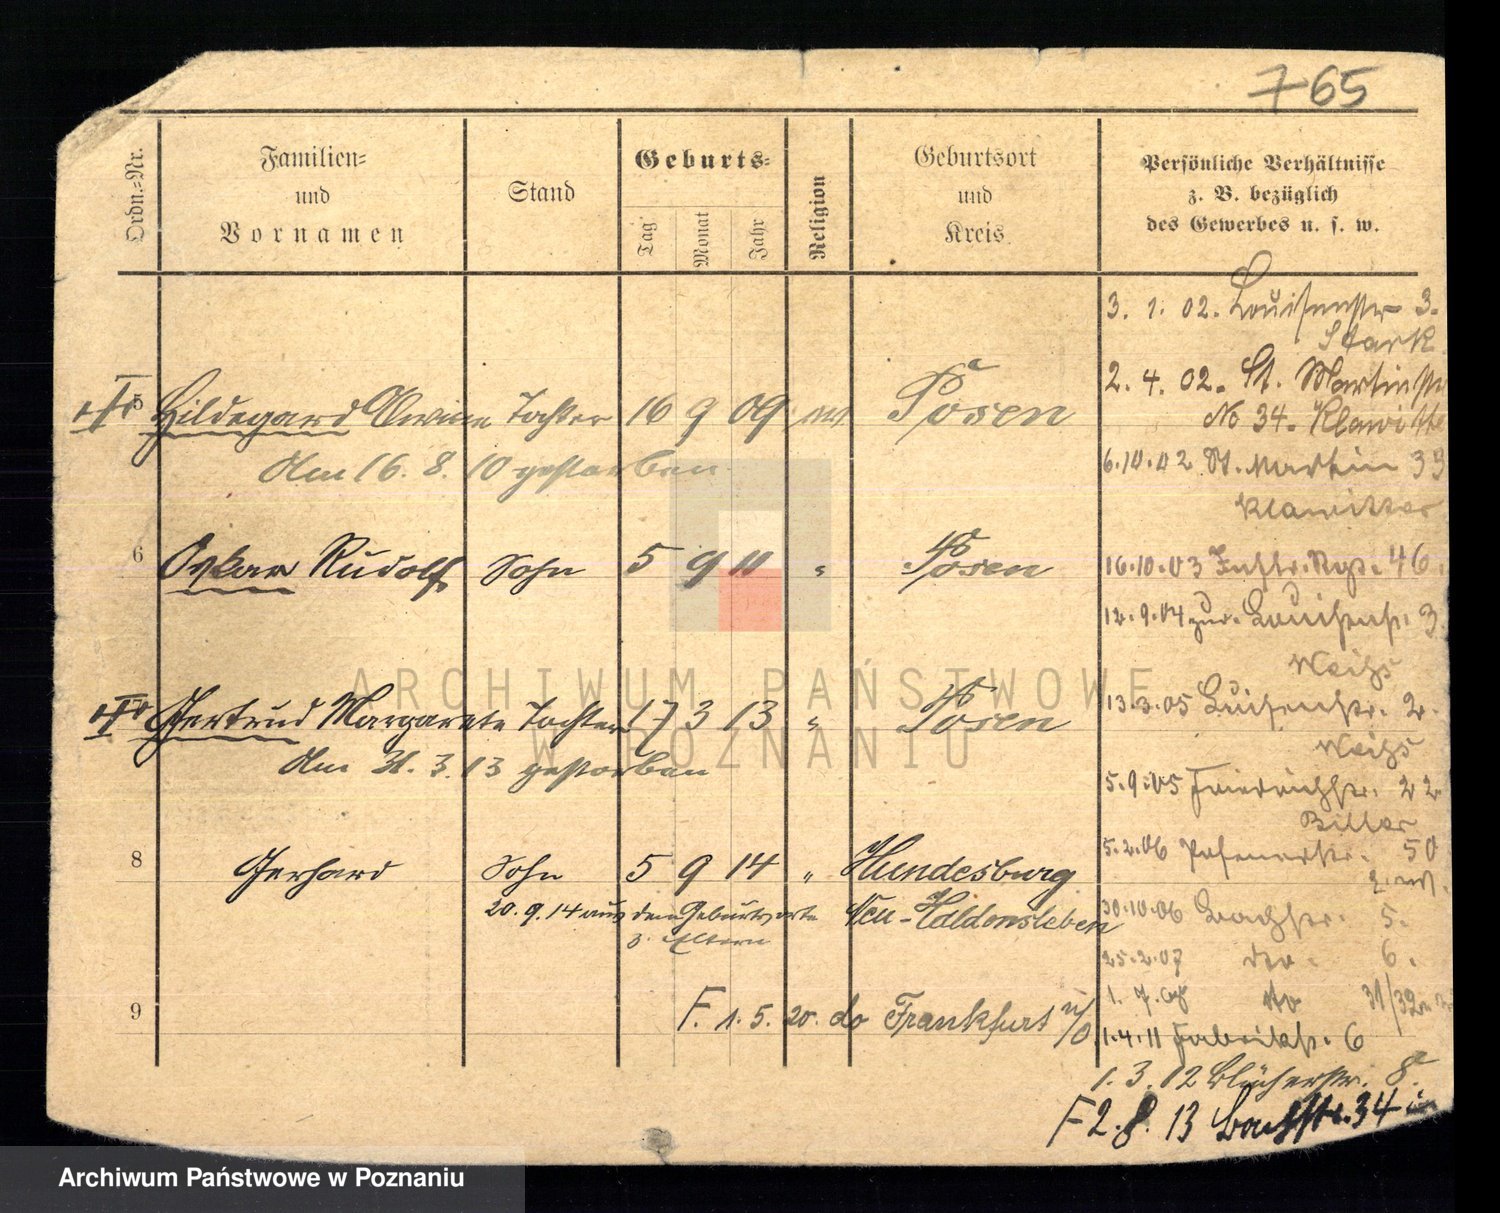 765
Ordn.=Nr.
Familien=
und
Vornamen
Stand
Geburts=
Tag
Monat
Jahr
Religion
Geburtsort
und
Kreis
Persönliche Verhältnisse
z. B. bezüglich
des Gewerbes u. s. w.
3. 1. 02. Louisenstr 3.
Stark
5 Hildegard Tochter 16 9 09 Posen
2. 4. 02. St. Martinstr
No 34. Klawitte
Am 16. 8. 10 gestorben.
6.10.02 St. Martin 33
Klawitter
6 Oskar Rudolf Sohn 5 9 11 " Posen
16.10.03 46.
12.9.04 zur. Louisenstr. 3.
Weihs
Gertrud Margarete Tochter 17 3 13 " Posen
13.3.05 Luisenstr. 2.
Weihs
Am 31. 3. 13 gestorben
5.9.05 Friedrichstr. 22
Biller
8 Gerhard Sohn 5 9 14 " Hundesburg
5.2.06 Posenerstr. 50
20.9.14 aus dem Geburtsorte Neu-Haldensleben
z. Eltern
30.10.06 Bachstr. 5.
25.2.07 6.
9 F. 1. 5. 20. do Frankfurt a/O.
1. 7. do 31/32
1.4.11 Fabrikstr. 6
1. 3. 12 Blücherstr. 8.
F 2. 8. 13 Bachstr. 34
ARCHIWUM PAŃSTWOWE
W POZNANIU
Archiwum Państwowe w Poznaniu